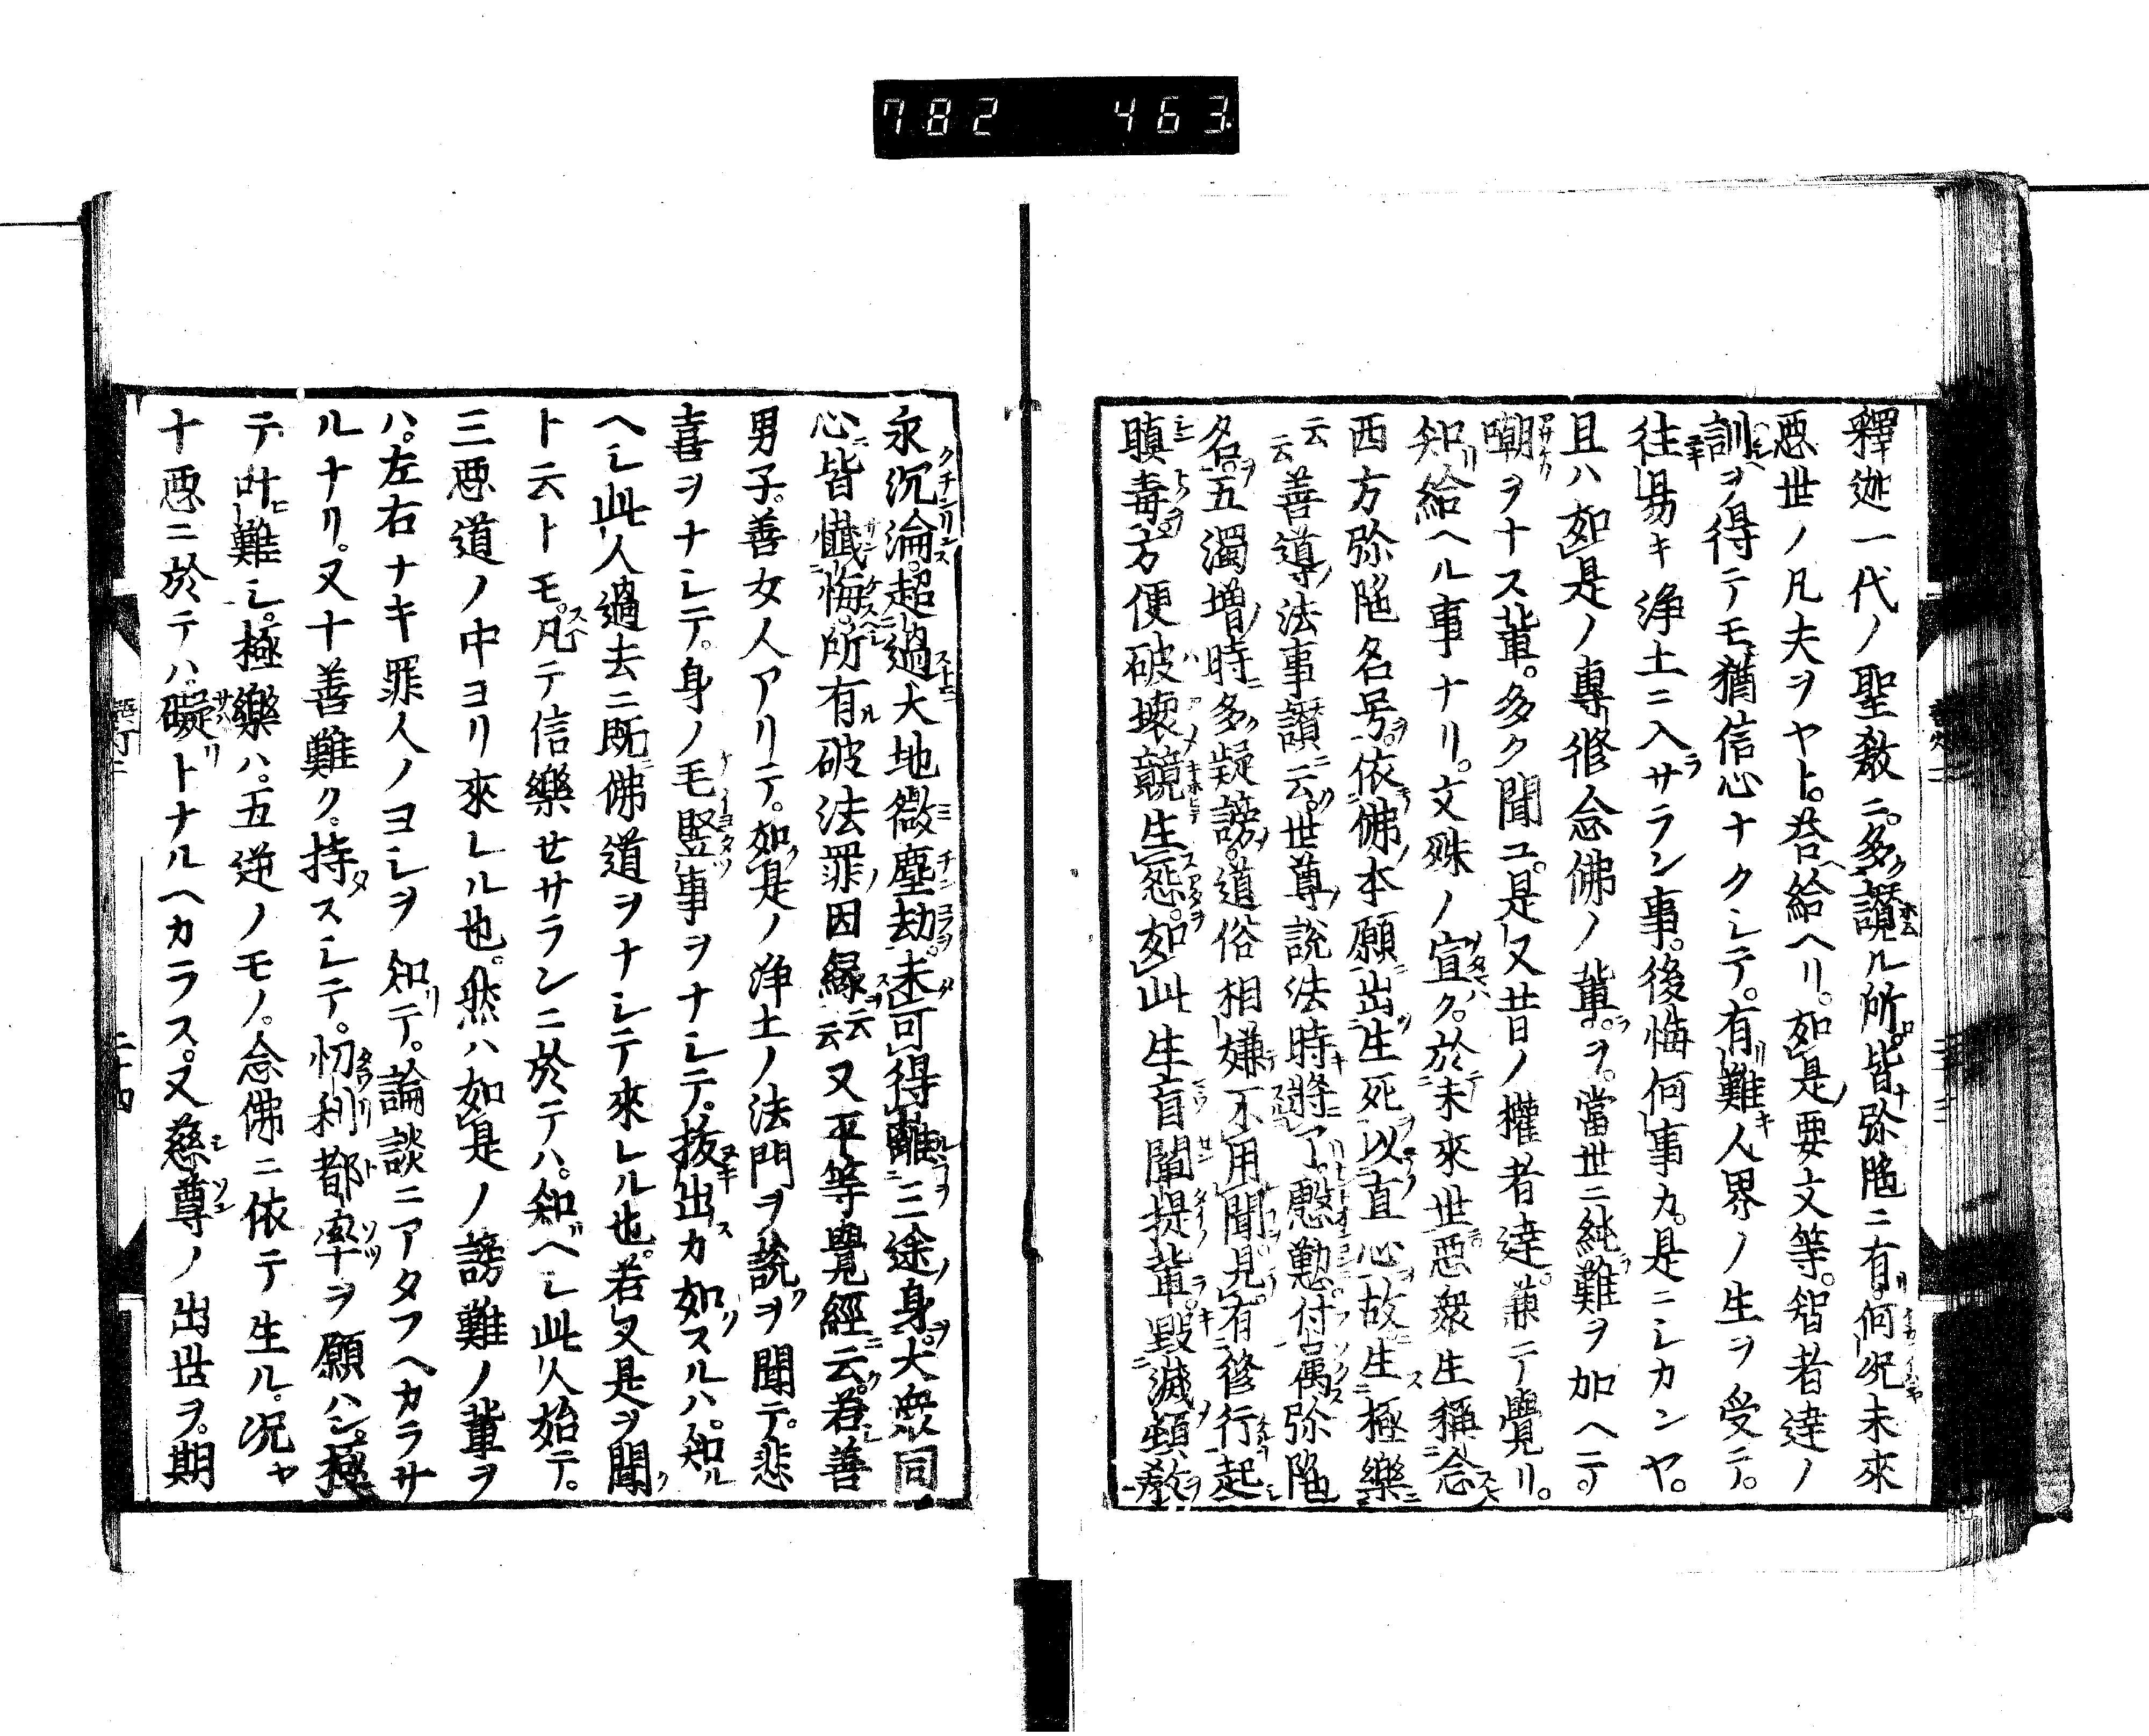 782 463
釋迦一代ノ聖教ニ。多ク讃ル所。皆弥陀ニ有リ。何况未來
悪世ノ凡夫ヲヤト。荅給ヘリ。如是ノ要文等。智者達ノ
訓ヲ得テモ。猶信心ナクシテ。有リ難キ人界ノ生ヲ受テ。
往易キ浄土ニ入ラサラン事。後悔何事カ。是ニシカンヤ。
且ハ如是ノ專修念佛ノ輩ラヲ。當世ニ純ラ難ヲ加ヘテ。
嘲ヲナス輩。多ク聞ユ。是又昔ノ權者達。兼テ覺リ。
知リ給ヘル事ナリ。文殊ノ宣ク。於未來世悪衆生稱念
西方弥陀名号。依佛本願出生死以直心故生極樂
云云善導ノ法事讃ニ云ク。世尊説法時將了慇懃付属弥陀
名。五濁増時多疑謗。道俗相嫌不用聞。見有修行起
瞋毒。方便破壊競生怨。如此生盲闡提輩。毀滅頓教
永沉淪。超過大地微塵劫。未可得離三途身。大衆同
心皆懺悔。所有破法罪因縁云云又平等覺經ニ云ク。若シ善
男子。善女人アリテ。如是ノ浄土ノ法門ヲ説クヲ聞テ。悲
喜ヲナシテ。身ノ毛竪事ヲナシテ。抜出スカ如クスルハ。知ル
ヘシ此人過去ニ既ニ佛道ヲナシテ來レル也。若又是ヲ聞ク
ト云トモ。凡テ信樂セサランニ於テハ。知ベシ此人始テ。
三悪道ノ中ヨリ來レル也。然ハ如是ノ謗難ノ輩ヲ
ハ。左右ナキ罪人ノヨシヲ知リテ。論談ニアタフヘカラサ
ルナリ。又十善難ク。持タスシテ。忉利都率ヲ願ハン。極
テ叶ヒ難シ。極樂ハ。五逆ノモノ。念佛ニ依テ生ル。况ヤ
十悪ニ於テハ。礙リトナルヘカラス。又慈尊ノ出世ヲ。期
二十四